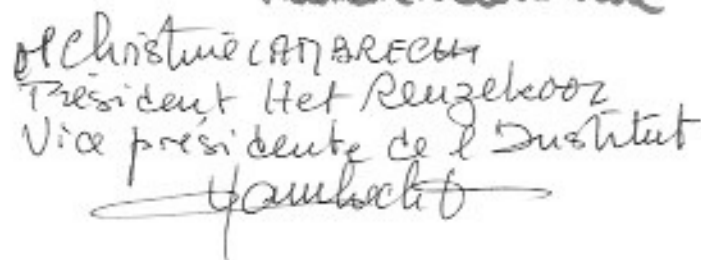 Christine LAMBRECHT
Président Het Reuzekoor
Vice présidente de l Institut